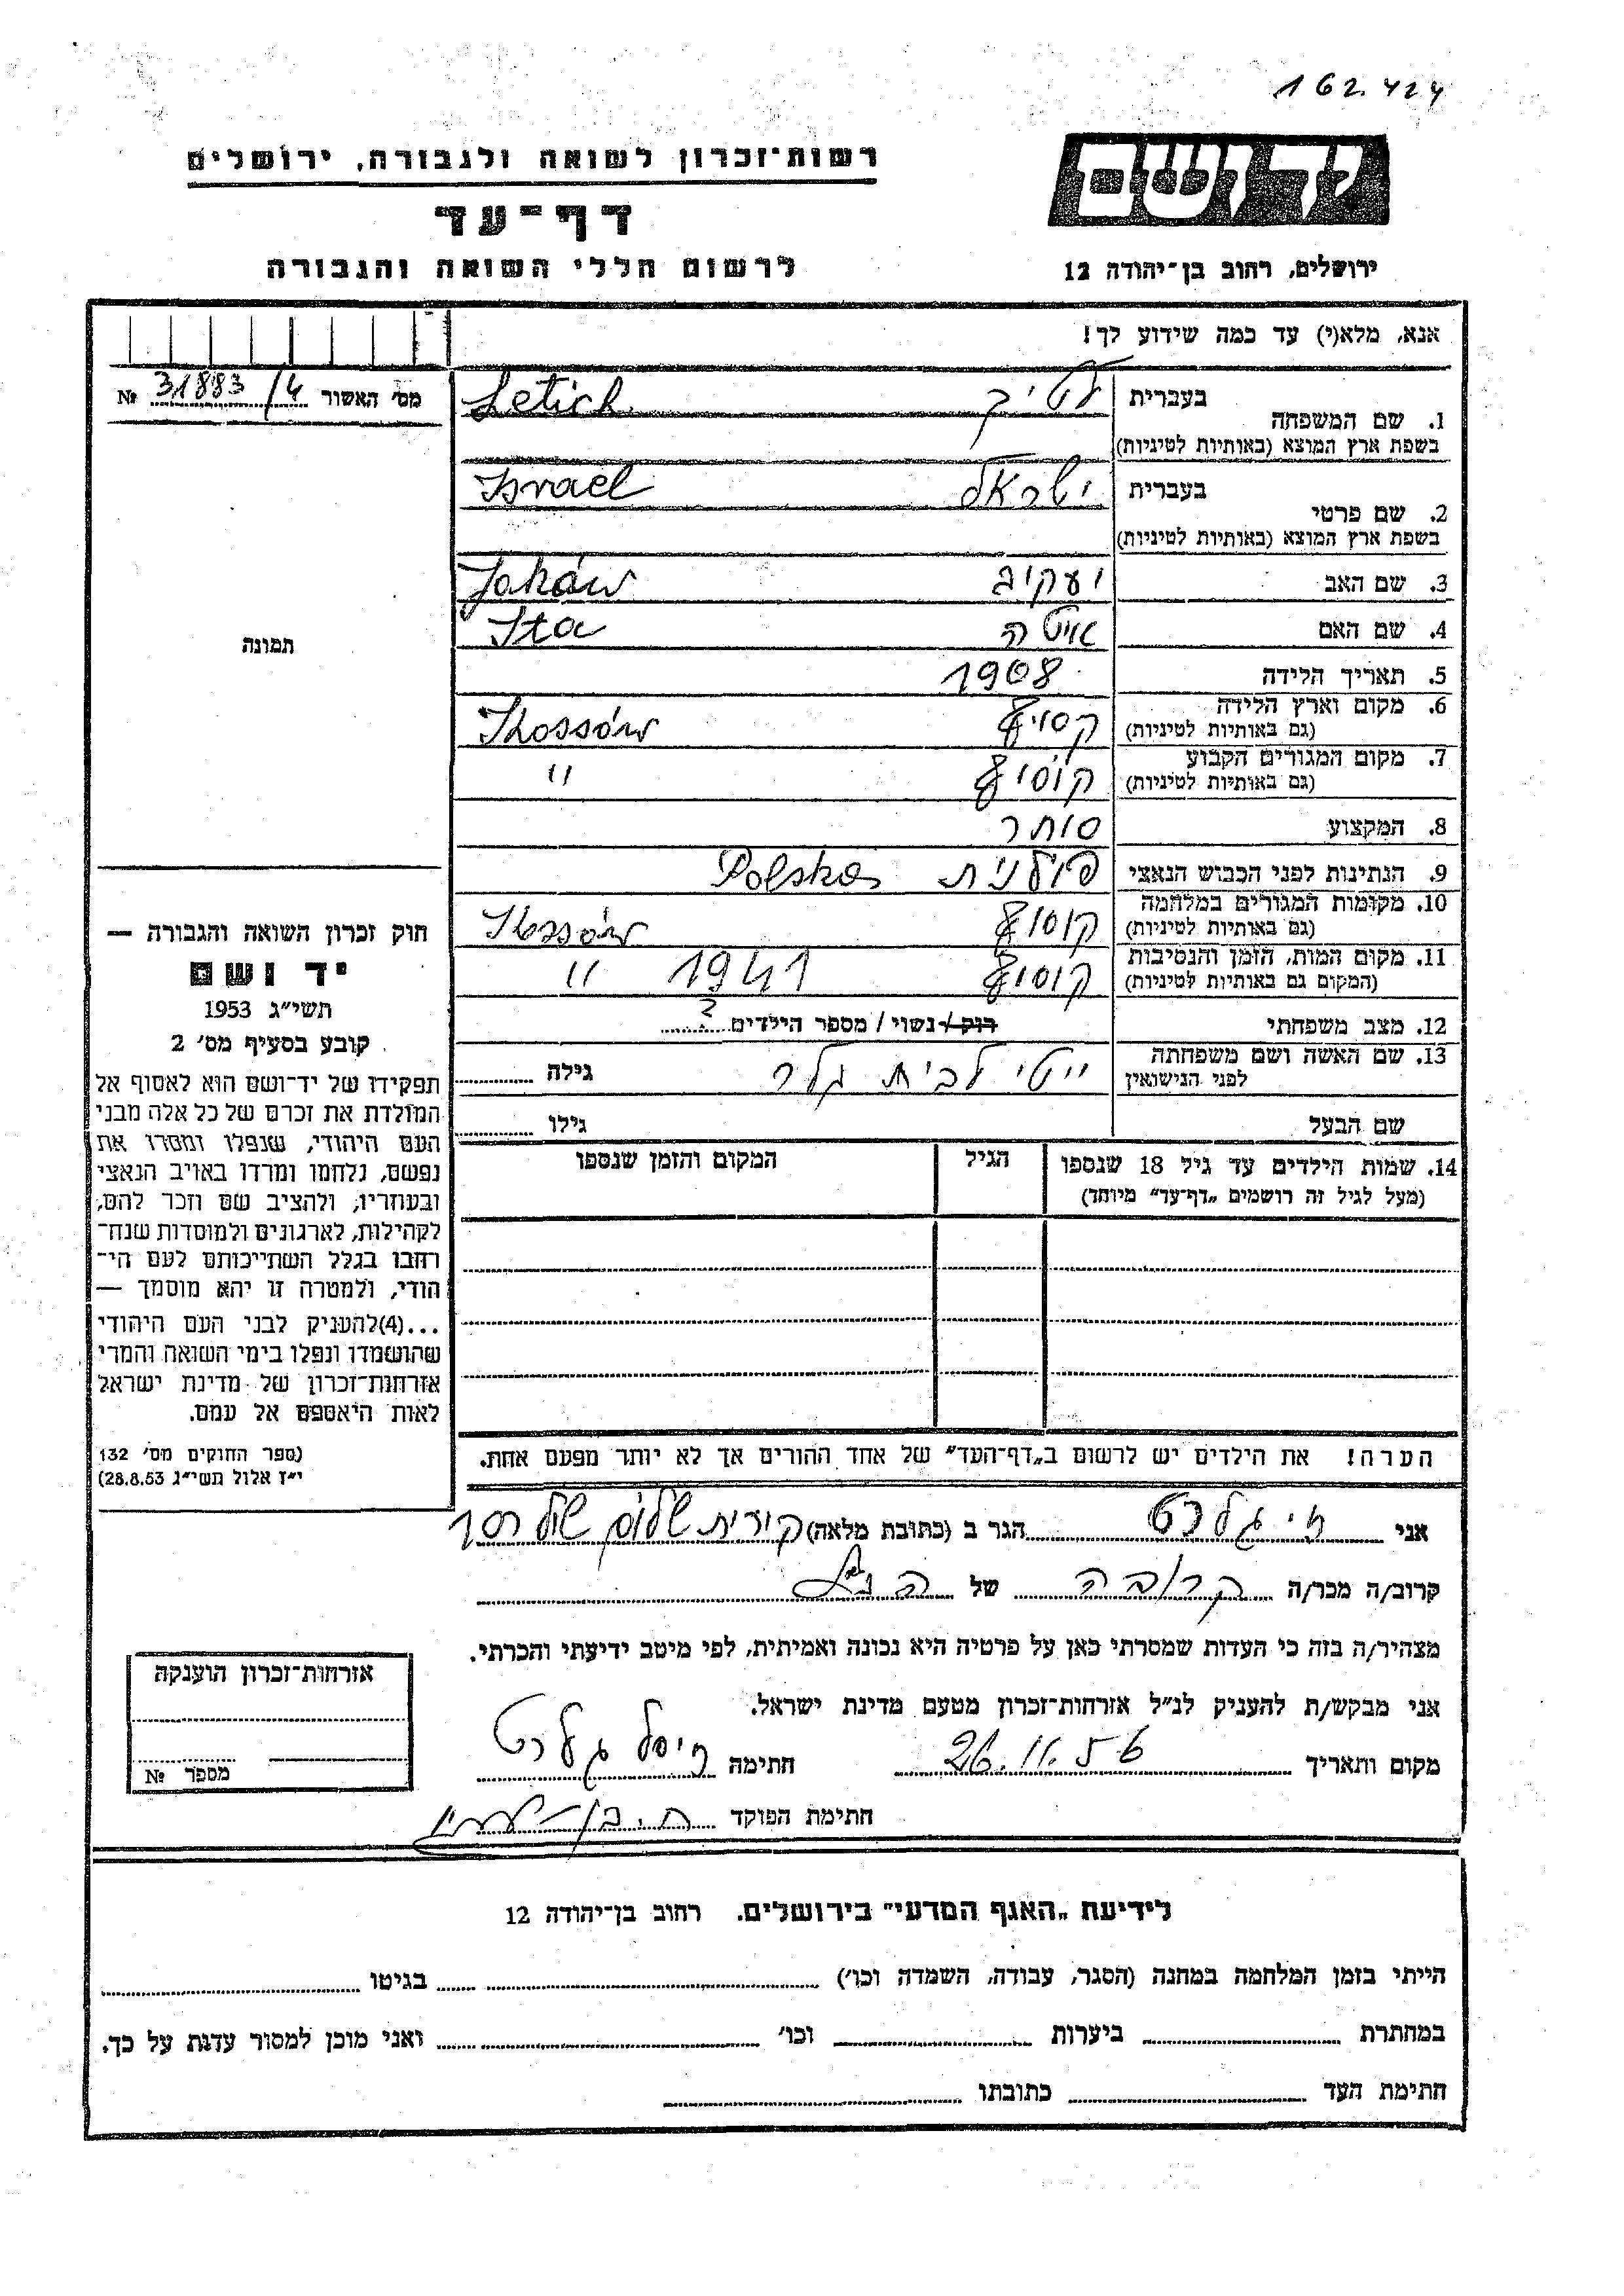 162.424
יד ושם
רשות־זכרון לשואה ולגבורה, ירושלים
דף־עד
לרשום חללי השואה והגבורה
ירושלים, רחוב בן־יהודה 12
אנא, מלא(י) עד כמה שידוע לך!
מס׳ האשור 31883/4 №
1. שם המשפחה בעברית לטיך Letich
בשפת ארץ המוצא (באותיות לטיניות)
2. שם פרטי בעברית ישראל Israel
בשפת ארץ המוצא (באותיות לטיניות)
3. שם האב יעקוב Jaków
4. שם האם איטה Ita
5. תאריך הלידה 1908
6. מקום וארץ הלידה קסוב Kossów
(גם באותיות לטיניות)
7. מקום המגורים הקבוע קוסוב "
(גם באותיות לטיניות)
8. המקצוע סוחר
9. הנתינות לפני הכבוש הנאצי פולנית Polska
10. מקומות המגורים במלחמה קוסוב Kossów
(גם באותיות לטיניות)
11. מקום המות, הזמן והנסיבות קוסוב 1941 "
(המקום גם באותיות לטיניות)
12. מצב משפחתי רוק / נשוי / מספר הילדים 2
13. שם האשה ושם משפחתה לפני הנישואין ייטי לבית גלר גילה
שם הבעל גילו
14. שמות הילדים עד גיל 18 שנספו הגיל המקום והזמן שנספו
(מעל לגיל זה רושמים „דף־עד” מיוחד)
הערה! את הילדים יש לרשום ב„דף־העד” של אחד ההורים אך לא יותר מפעם אחת.
תמונה
חוק זכרון השואה והגבורה —
יד ושם
תשי״ג 1953
קובע בסעיף מס׳ 2
תפקידו של יד־ושם הוא לאסוף אל
המולדת את זכרם של כל אלה מבני
העם היהודי, שנפלו ומסרו את
נפשם, נלחמו ומרדו באויב הנאצי
ובעוזריו, ולהציב שם וזכר להם,
לקהילות, לארגונים ולמוסדות שנח־
רחבו בגלל השתייכותם לעם הי־
הודי, ולמטרה זו יהא מוסמך —
...(4)להעניק לבני העם היהודי
שהושמדו ונפלו בימי השואה והמרי
אזרחות־זכרון של מדינת ישראל
לאות היאספם אל עמם.
(ספר החוקים מס׳ 132
י״ז אלול תשי״ג 28.8.53)
אני הגר ב (כתובת מלאה) קירית שלום
קרוב/ה מכר/ה קרובה של הנ״ל
מצהיר/ה בזה כי העדות שמסרתי כאן על פרטיה היא נכונה ואמיתית, לפי מיטב ידיעתי והכרתי.
אני מבקש/ת להעניק לנ״ל אזרחות־זכרון מטעם מדינת ישראל.
מקום ותאריך 26.11.56 חתימה
חתימת הפוקד
אזרחות־זכרון הוענקה
מספר №
לידיעת „האגף המדעי” בירושלים. רחוב בן־יהודה 12
הייתי בזמן המלחמה במחנה (הסגר, עבודה, השמדה וכו׳) בגיטו
במחתרת ביערות וכו׳ ואני מוכן למסור עדות על כך.
חתימת העד כתובתו